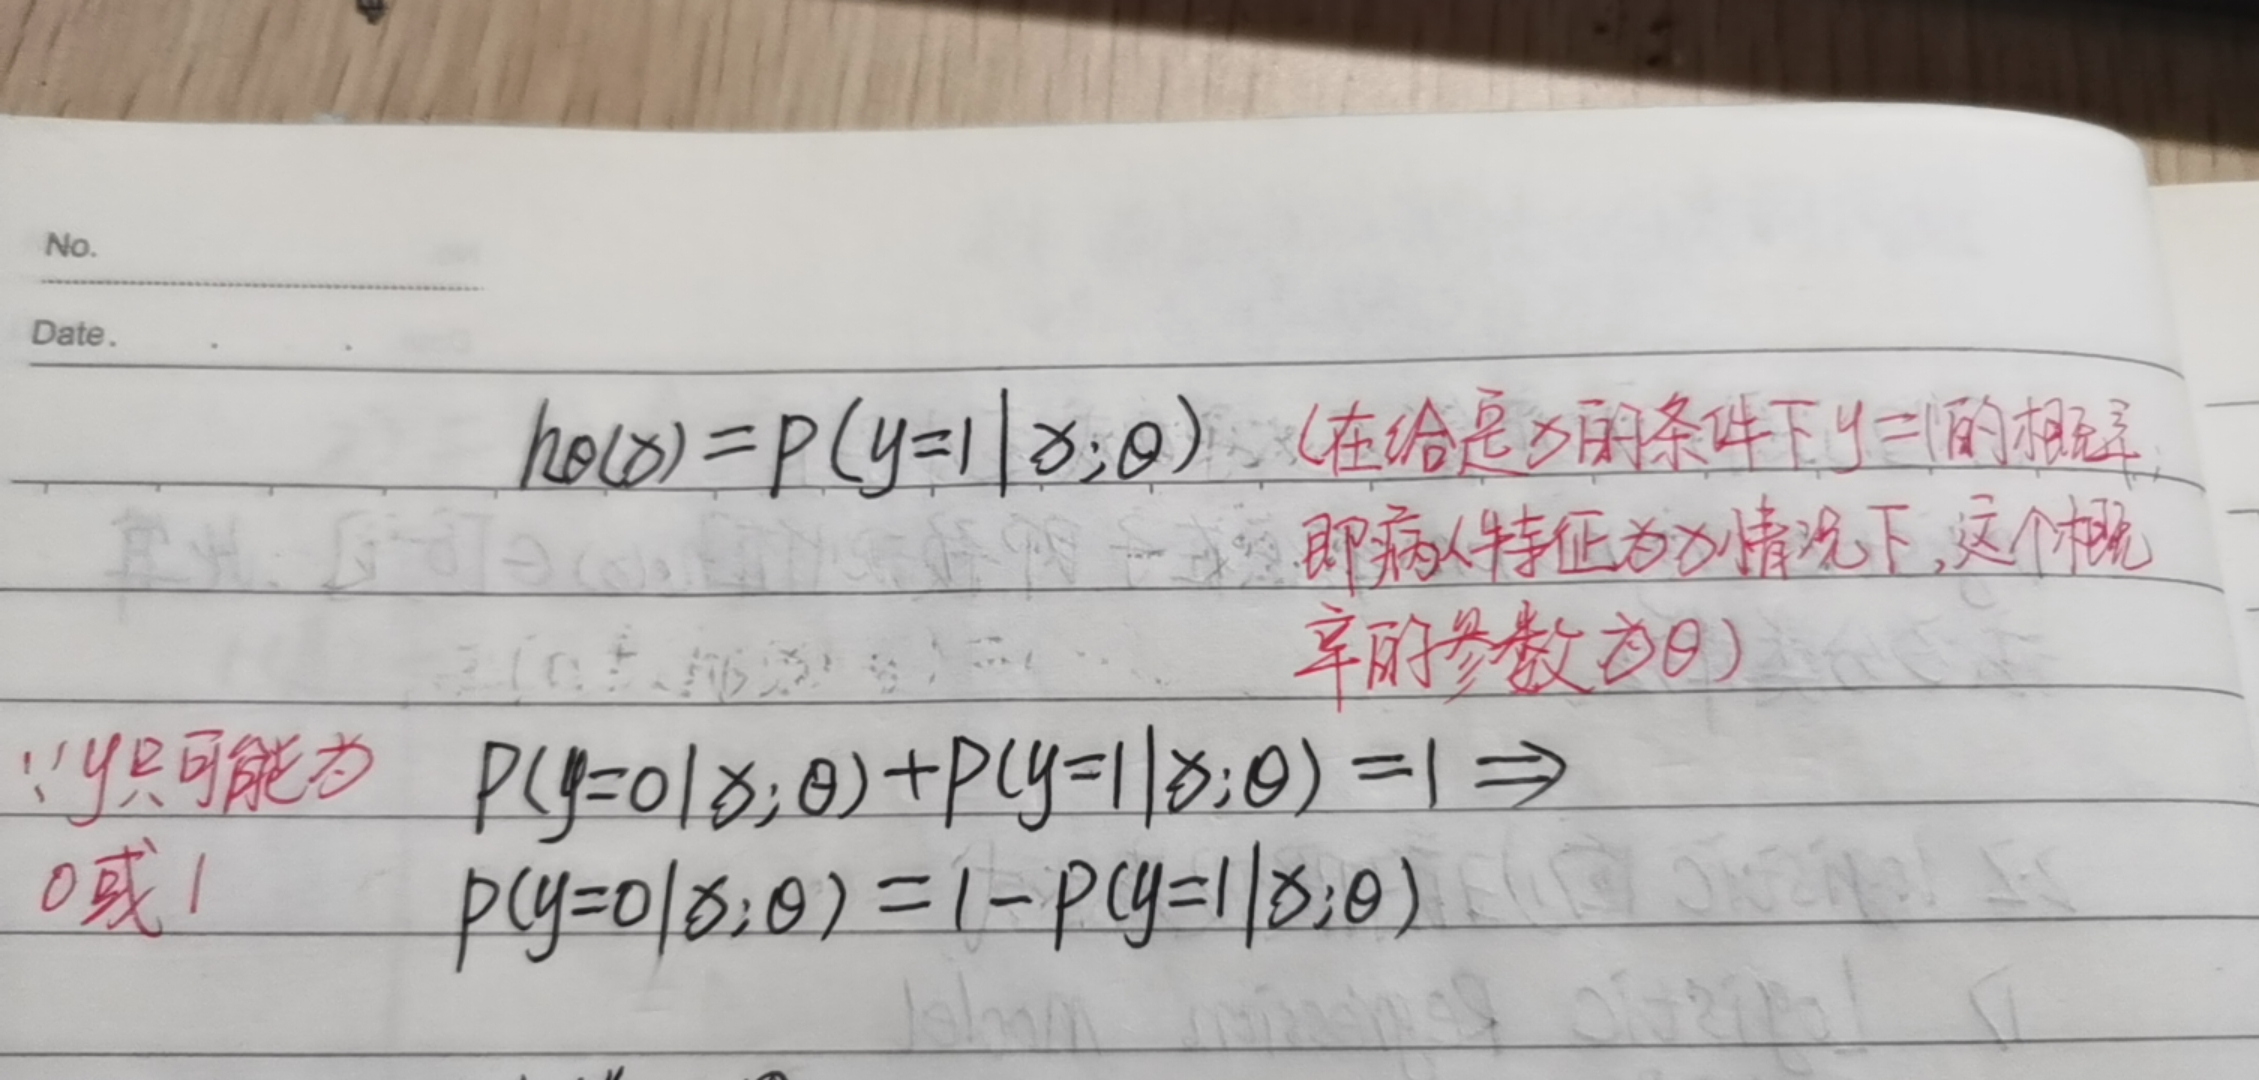 No.
Date.
hθ(x) = P(y=1|x;θ) (在给定x的条件下y=1的概率,
即病人特征为x情况下,这个概
率的参数为θ)
∵y只可能为 P(y=0|x;θ)+P(y=1|x;θ) =1 ⇒
0或1 P(y=0|x;θ) = 1-P(y=1|x;θ)